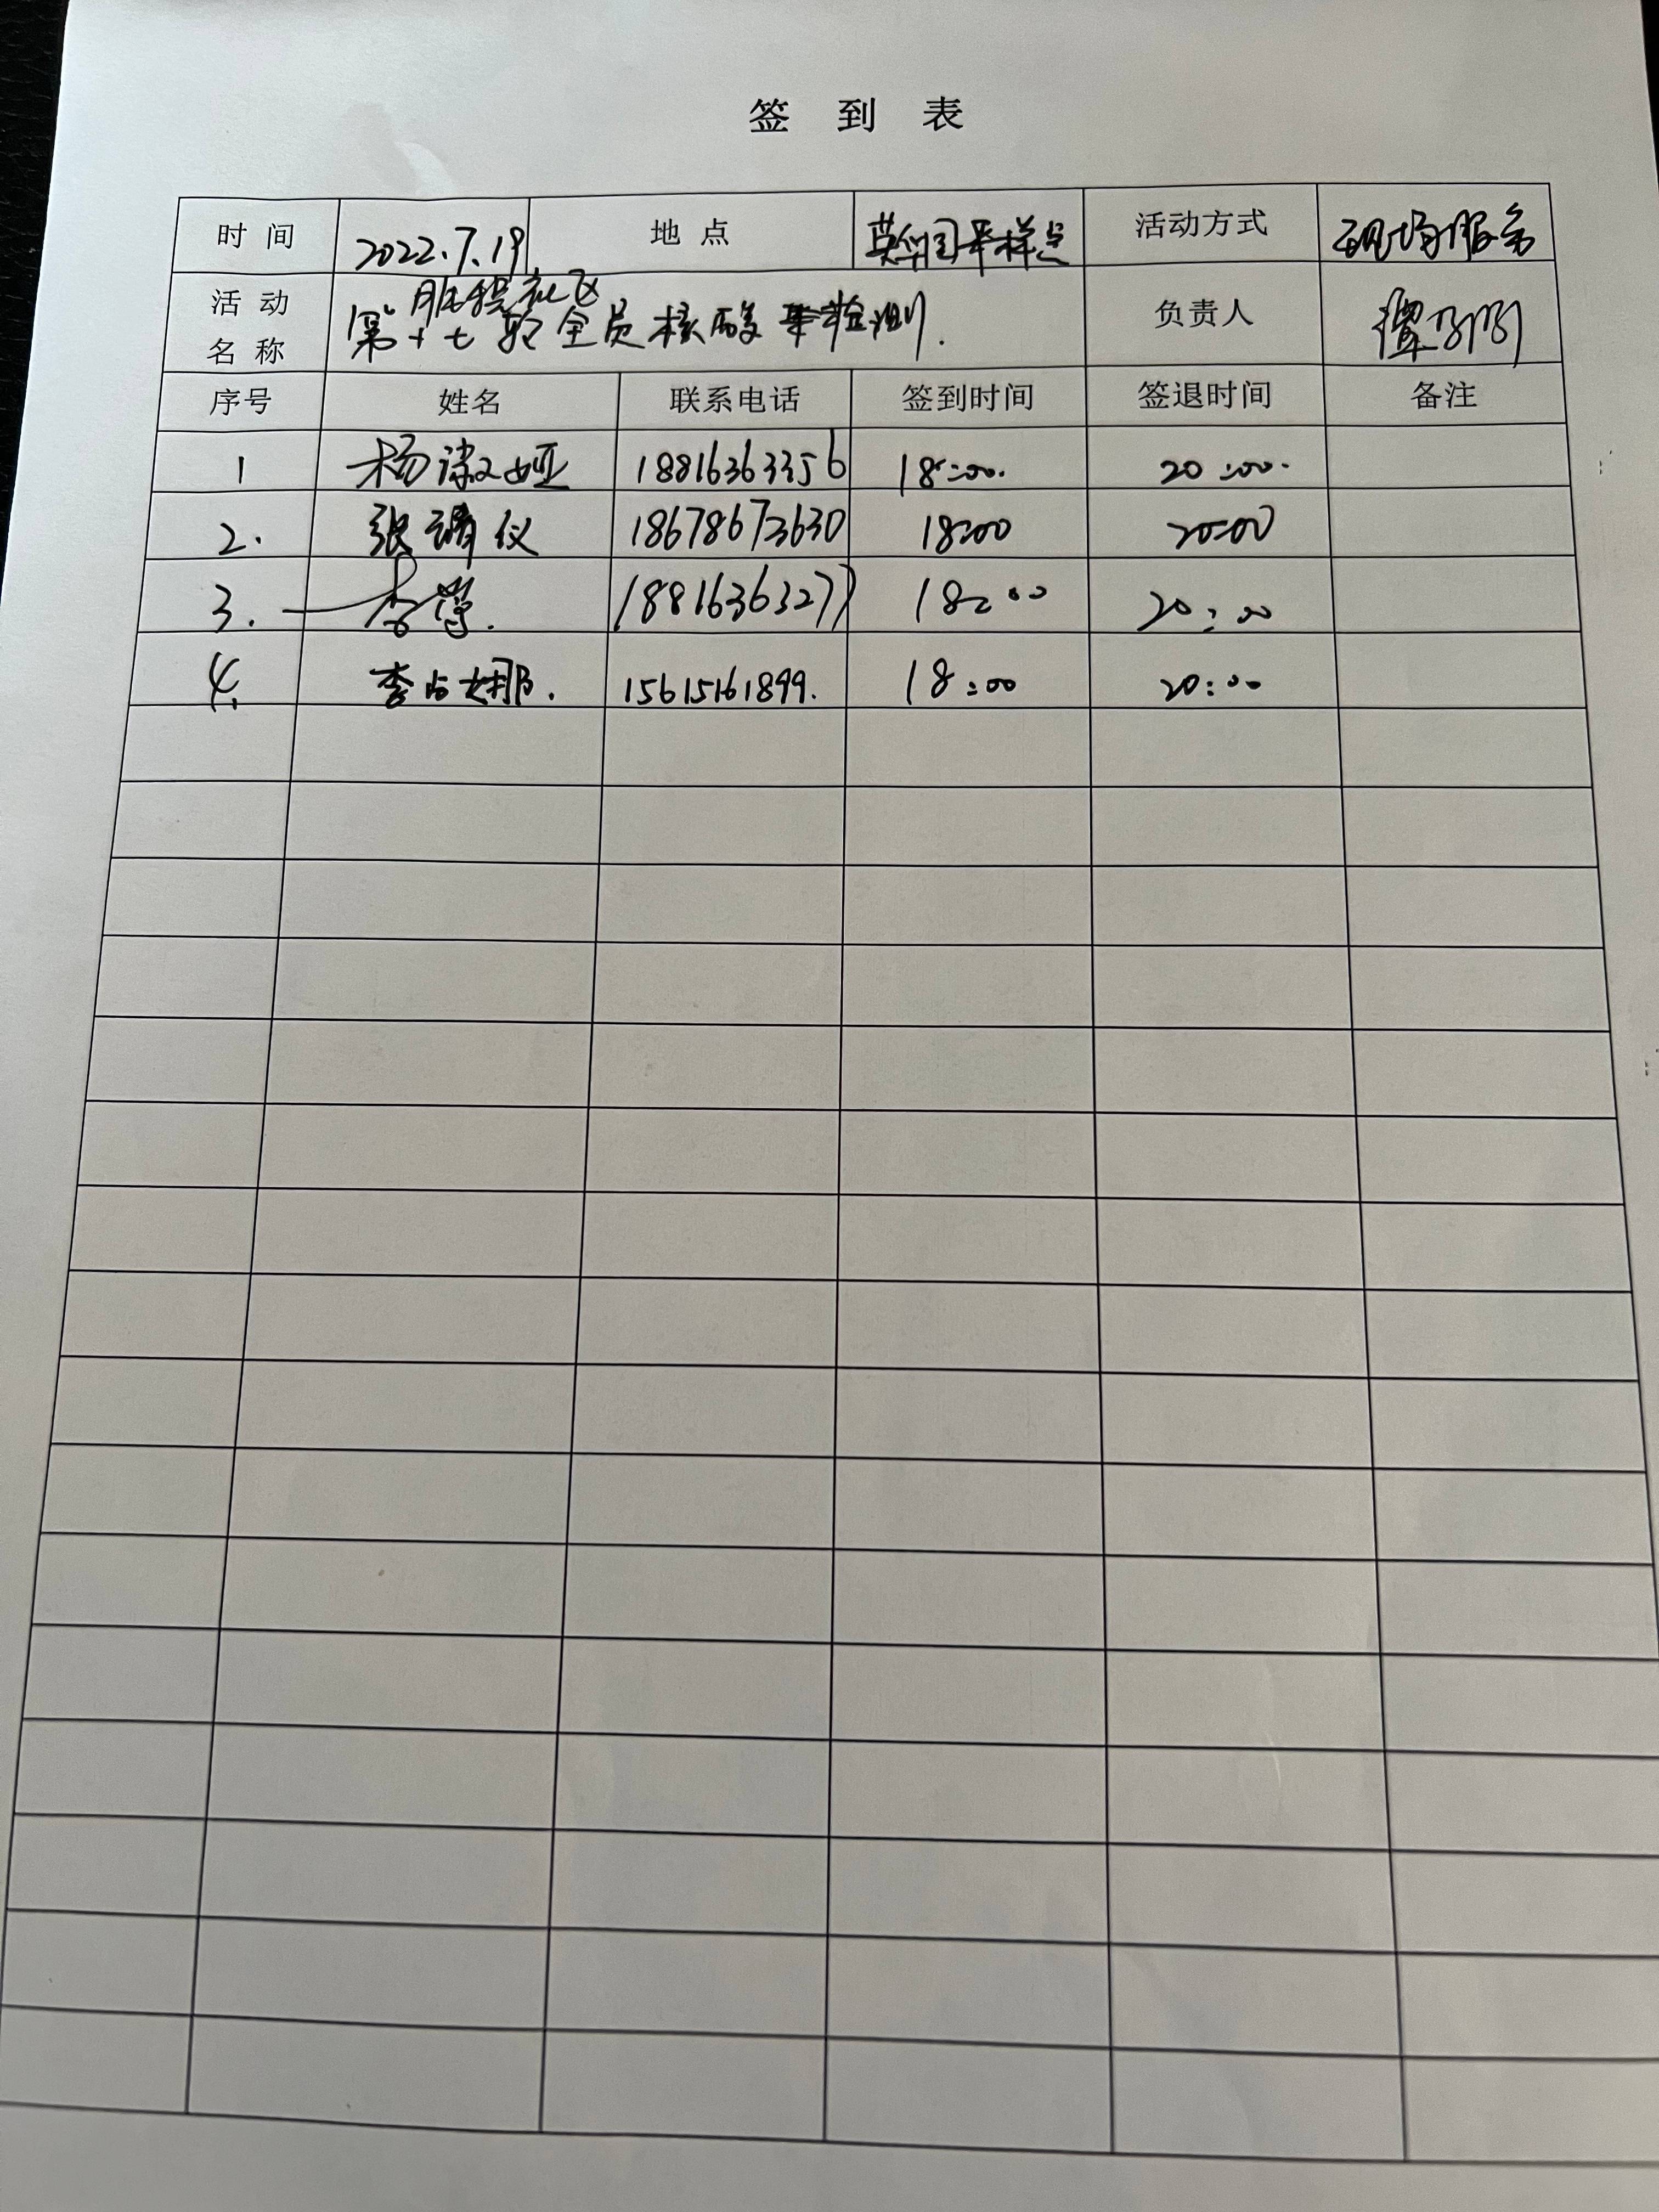 签到表
时间 2022.7.19 地点 英伦国采样点 活动方式 现场服务
活动名称 社区
第十七轮全员核酸检测. 负责人
序号 姓名 联系电话 签到时间 签退时间 备注
1 杨淑娅 18816363356 18:00. 20:00.
2. 张靖仪 18678673630 18:00 20:00
3. 李莹. 18816363277 18:00 20:00
4. 李娜. 15615161899. 18:00 20:00